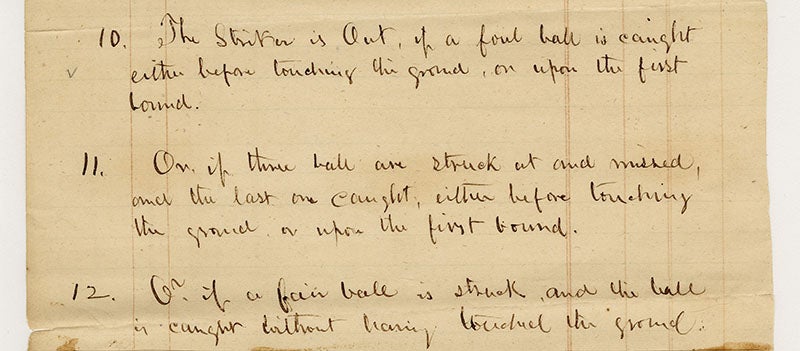 10. The Striker is Out, if a foul ball is caught
either before touching the ground, or upon the first
bound.
11. Or. if three ball are struck at and missed,
and the last one caught, either before touching
the ground or upon the first bound.
12. Or. if a fair ball is struck, and the ball
is caught without having touched the ground.